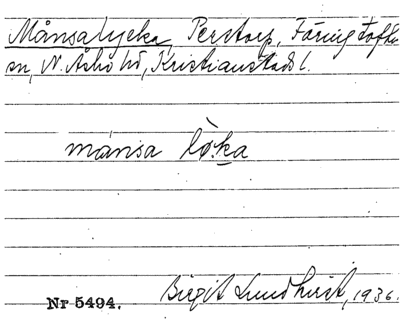 Månsalycka, Perstorp, Färingtofta
sn, N. Åsbo hd, Kristianstads l.
mánsa lø̀.ka
Birgit Lundkvist, 1936.
Nr 5494.